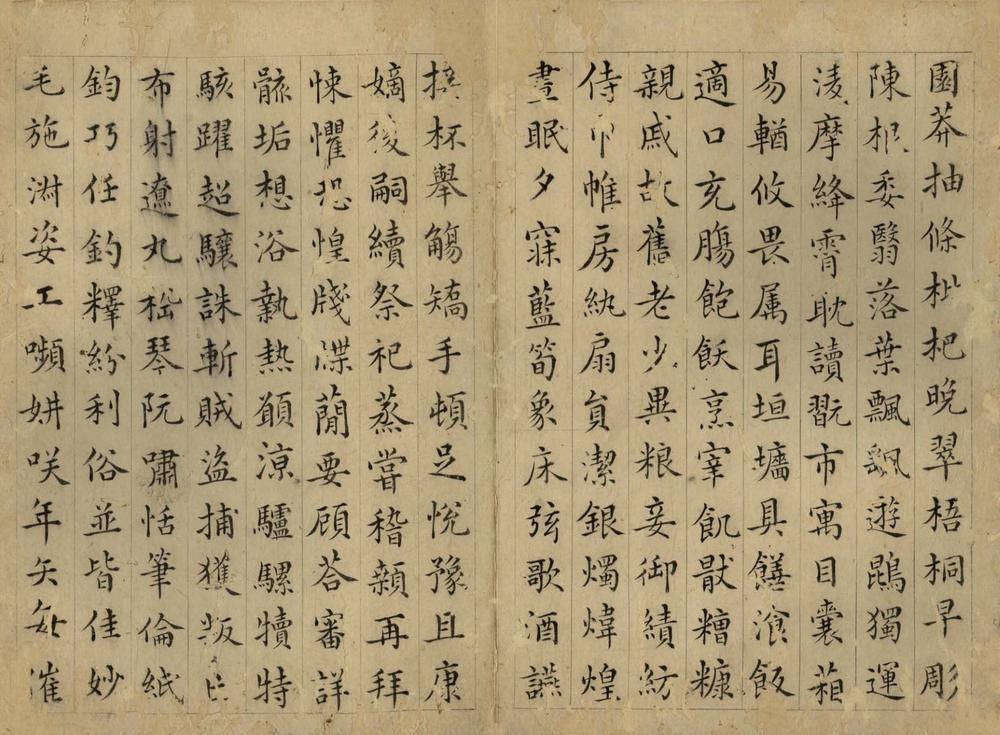 園莽抽條枇杷晚翠梧桐早彫
陳根委翳落葉飄飖遊鵾獨運
淩摩絳霄耽讀翫市寓目囊葙
易輶攸畏属耳垣墻具饍飡飯
適口充腸飽飫烹宰飢猒糟糠
親戚故舊老少異粮妾御績紡
侍巾帷房紈扇員潔銀燭煒煌
晝眠夕寐藍筍象床弦歌酒讌
接杯舉觴矯手頓足悅豫且康
嫡後嗣續祭祀蒸嘗稽顙再拜
悚懼恐惶牋牒蕳要顾荅審詳
骸垢想浴執熱願涼驢騾犢特
駭躍超驤誅斬賊盜捕獲叛亡
布射遼丸嵇琴阮嘯恬筆倫紙
鈞巧任釣釋紛利俗並皆佳妙
毛施淑姿工嚬妍咲年矢每催